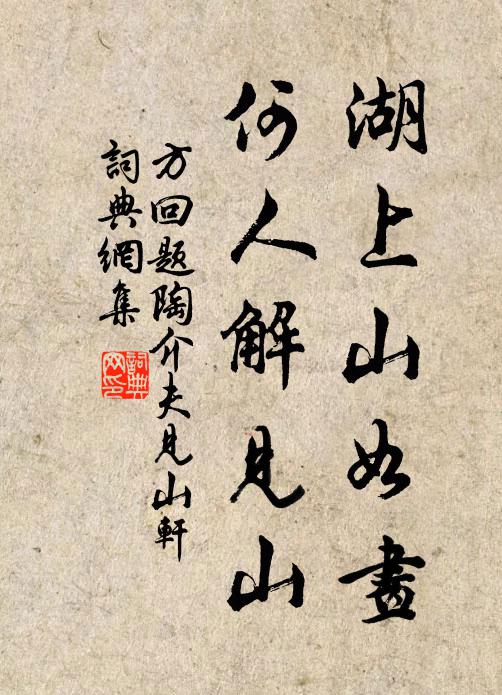 湖上山如畫
何人解見山
方回题陶介夫見山軒
詞典網集
詞典
网印